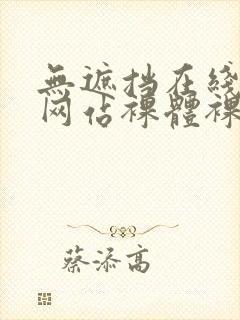 無遮挡在线
网佔裸體裸
蔡添高